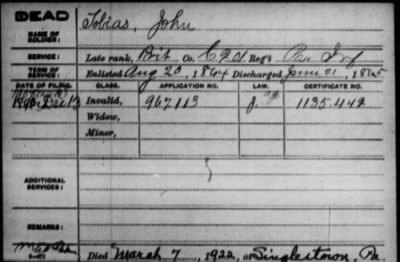 DEAD
Tobias, John
NAME OF SOLDIER:
SERVICE: Late rank, Pvt Co. C, Reg't Pa Inf
TERM OF SERVICE: Enlisted Aug 20, 1864 Discharged June 21, 1865
DATE OF FILING. CLASS. APPLICATION NO. LAW. CERTIFICATE NO.
1890, Dec 13 Invalid, 967113 J. 1135.442
Widow,
Minor,
ADDITIONAL SERVICES:
REMARKS:
Died March 7, 1922, at Singlestown, Pa.